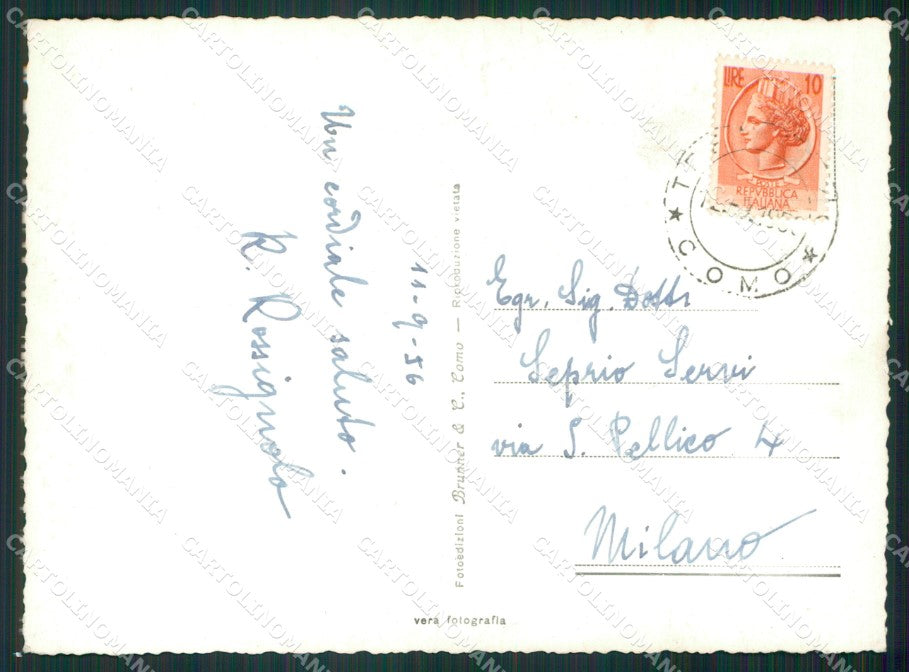 Un cordiale saluto.
R. Rossignolo
11-9-56
Fotoedizioni Brunner & C., Como — Riproduzione vietata
LIRE 10
POSTE
REPVBBLICA
ITALIANA
COMO
Egr. Sig. Dott.
Seprio Servi
via S. Pellico 4
Milano
vera fotografia
CARTOLINOMANIA